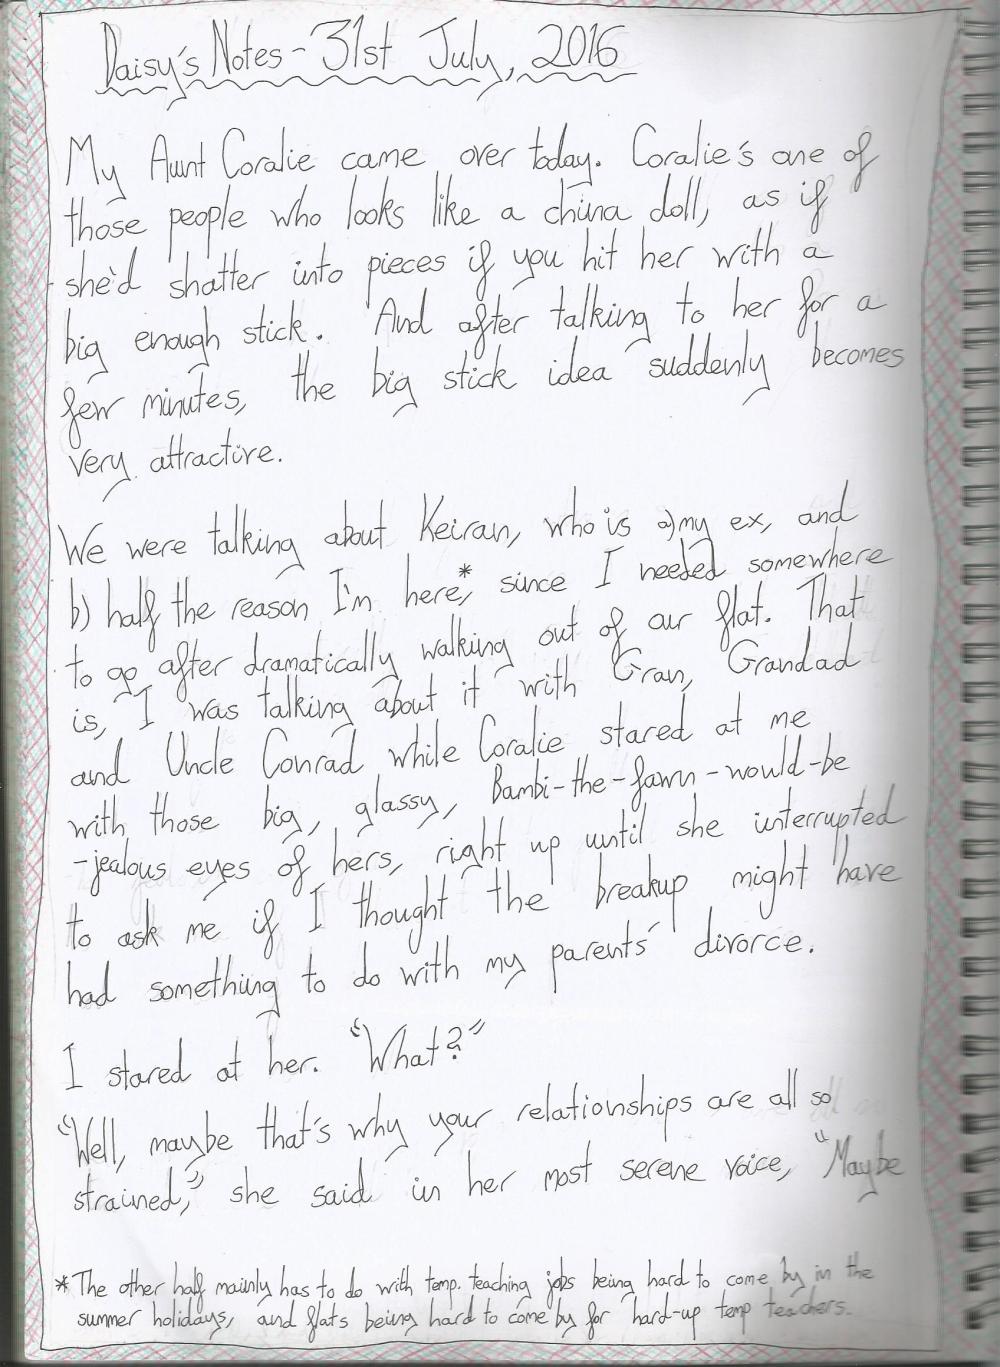 Daisy's Notes - 31st July, 2016
My Aunt Coralie came over today. Coralie's one of
those people who looks like a china doll, as if
she'd shatter into pieces if you hit her with a
big enough stick. And after talking to her for a
few minutes, the big stick idea suddenly becomes
very attractive.
We were talking about Keiran, who is a) my ex, and
b) half the reason I'm here,* since I needed somewhere
to go after dramatically walking out of our flat. That
is, I was talking about it with Gran, Grandad
and Uncle Conrad while Coralie stared at me
with those big, glassy, Bambi-the-fawn-would-be
-jealous eyes of hers, right up until she interrupted
to ask me if I thought the breakup might have
had something to do with my parents' divorce.
I stared at her. "What?"
"Well, maybe that's why your relationships are all so
strained," she said in her most serene voice, "Maybe
*The other half mainly has to do with temp. teaching jobs being hard to come by in the
summer holidays, and flats being hard to come by for hard-up temp teachers.